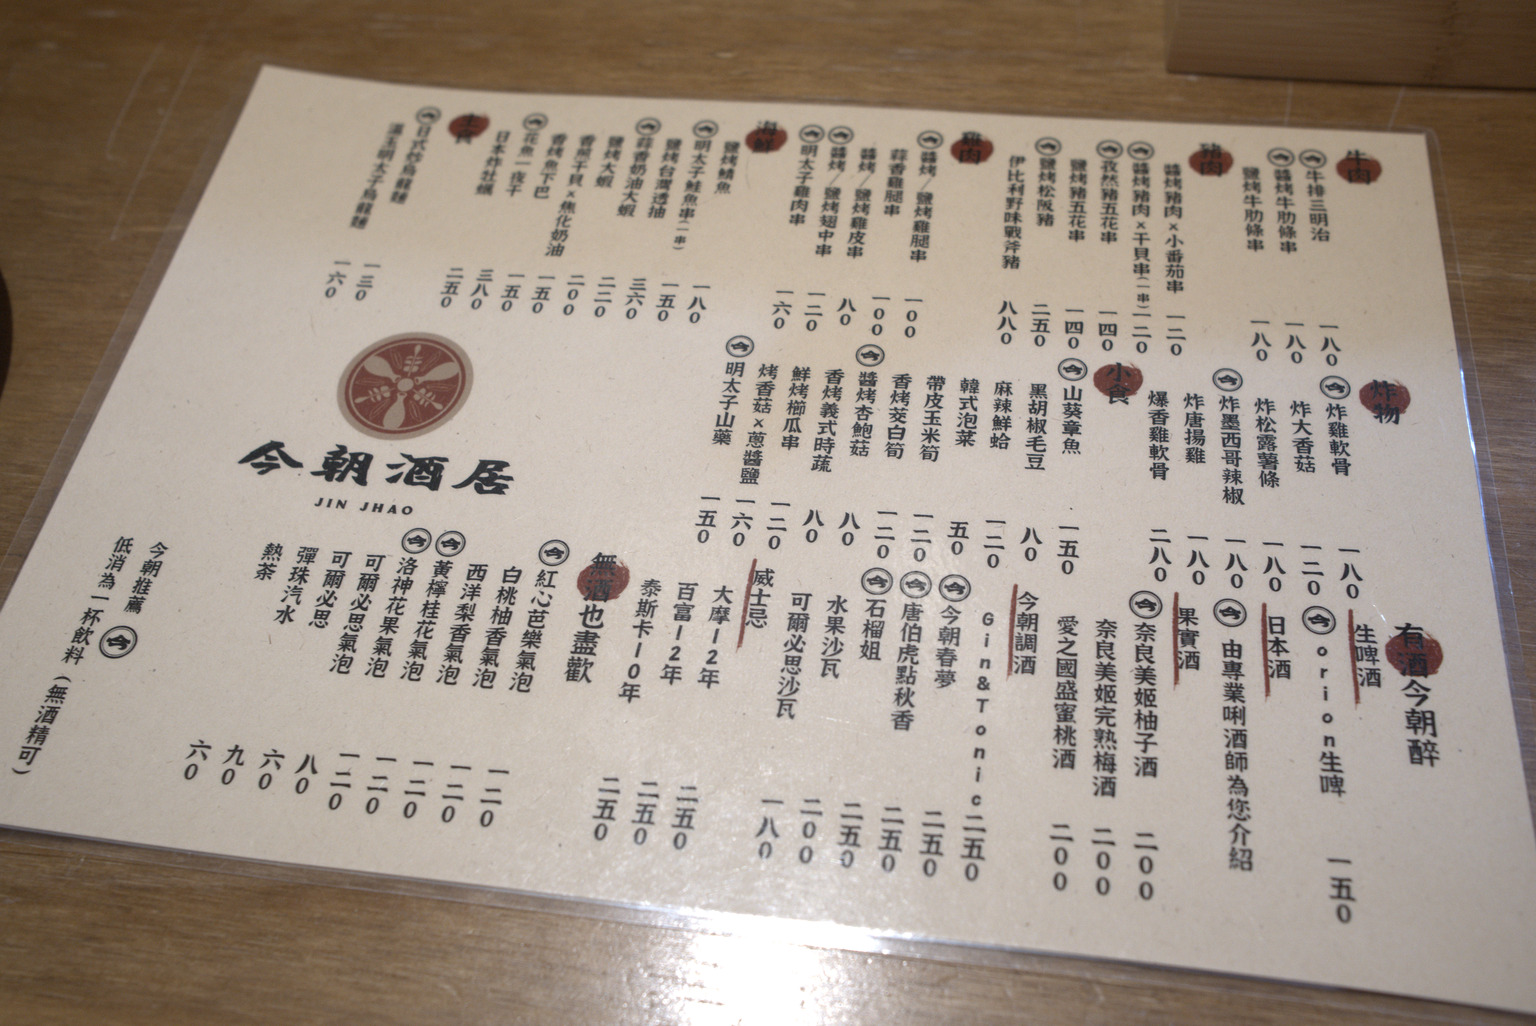 牛肉
㊎牛排三明治 一八0
㊎醬烤牛肋條串 一八0
鹽烤牛肋條串 一八0
豬肉
醬烤豬肉×小番茄串 一二0
㊎醬烤豬肉×干貝串(一串) 一二0
㊎孜然豬五花串 一四0
鹽烤豬五花串 一四0
㊎鹽烤松阪豬 二五0
伊比利野味戰斧豬 八八0
雞肉
㊎醬烤/鹽烤雞腿串 一00
蒜香雞腿串 一00
㊎醬烤/鹽烤雞皮串 八0
㊎醬烤/鹽烤翅中串 一二0
㊎明太子雞肉串 一六0
海鮮
鹽烤鯖魚 一八0
㊎明太子鮭魚串(一串) 一五0
鹽烤台灣透抽 三六0
㊎蒜香奶油大蝦 二二0
鹽烤大蝦 二00
香煎干貝×焦化奶油 一五0
香烤魚下巴 一五0
㊎花魚一夜干 三八0
日本炸牡蠣 二五0
主食
㊎日式炒烏龍麵 一三0
溫玉明太子烏龍麵 一六0
炸物
㊎炸雞軟骨 一八0
炸大香菇 一二0
炸松露薯條 一八0
㊎炸墨西哥辣椒 一八0
炸唐揚雞 一八0
爆香雞軟骨 二八0
小食
㊎山葵章魚 一五0
黑胡椒毛豆 八0
麻辣鮮蛤 一二0
韓式泡菜 五0
帶皮玉米筍 一二0
香烤茭白筍 一二0
㊎醬烤杏鮑菇 八0
香烤義式時蔬 八0
鮮烤櫛瓜串 一二0
烤香菇×蔥醬鹽 一六0
㊎明太子山藥 一五0
有酒今朝醉
生啤酒
㊎orion生啤 一五0
日本酒
㊎由專業唎酒師為您介紹
果實酒
㊎奈良美姬柚子酒 二00
奈良美姬完熟梅酒 二00
愛之國盛蜜桃酒 二00
今朝調酒
Gin&Tonic 二五0
㊎今朝春夢 二五0
㊎唐伯虎點秋香 二五0
㊎石榴姐 二五0
水果沙瓦 二00
可爾必思沙瓦 一八0
威士忌
大摩12年 二五0
百富12年 二五0
泰斯卡10年 二五0
無酒也盡歡
㊎紅心芭樂氣泡 一二0
白桃柚香氣泡 一二0
西洋梨香氣泡 一二0
㊎黃檸桂花氣泡 一二0
㊎洛神花果氣泡 一二0
可爾必思氣泡 八0
可爾必思 六0
彈珠汽水 九0
熱茶 六0
今朝酒居
JIN JHAO
今朝推薦㊎
低消為一杯飲料(無酒精可)